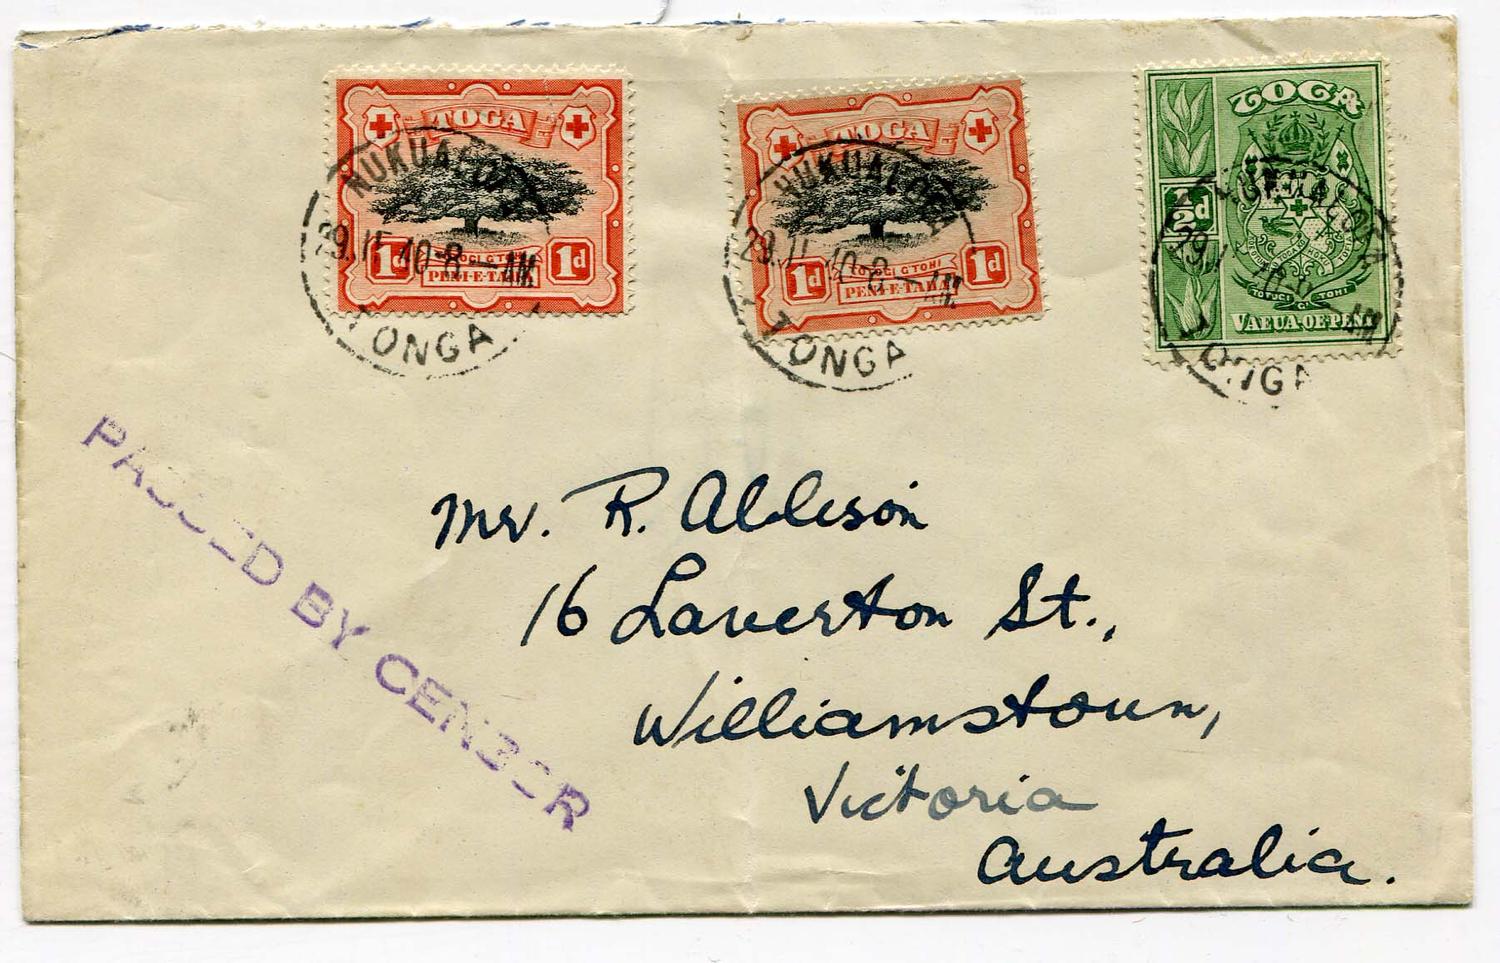 TOGA
1d 1d
TOTOGI GTOHI
PENI-E-TAHA
NUKUALOFA
29.11.40-8—AM
TONGA
TOGA
1d 1d
TOTOGI GTOHI
PENI-E-TAHA
NUKUALOFA
29.11.40-8—AM
TONGA
TOGA
½d
TOTOGI GI TOHI
VAEUA-OE-PENI
NUKUALOFA
TONGA
PASSED BY CENSOR
Mr. R. Allison
16 Laverton St.,
Williamstown,
Victoria
Australia.